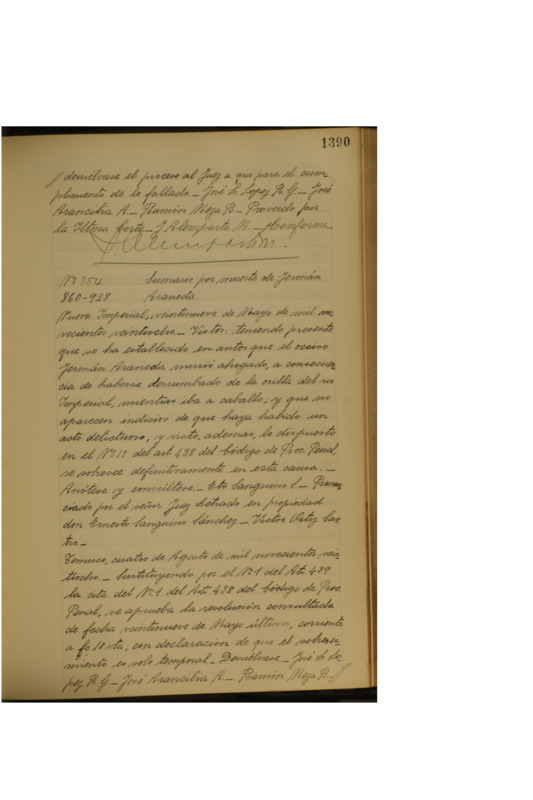 1390
// devuélvase el proceso al Juez a quo para el cum-
plimiento de lo fallado._ José L. Lopez R. G._ José
Arancibia A._ Ramón Meza B._ Proveido por
la Iltma Corte._ J. Alemparte M._ Conforme._
Nº 354 Sumario por muerte de Jermán
860-928 Araneda
Nueva Imperial, veintinueve de Mayo de mil no-
vecientos veintiocho._ Vistos: teniendo presente
que se ha establecido en autos que el occiso
Jermán Araneda murió ahogado, a consecuen-
cia de haberse derrumbado de la orilla del rio
Imperial, mientras iba a caballo; y que no
aparecen indicios de que haya habido un
acto delictuoso, y visto, ademas, lo dispuesto
en el Nº 1º del art. 438 del Código de Proc. Penal,
se sobresee definitivamente en esta causa._
Anótese y consúltese._ Eto Sanguino S._ Pronun-
ciado por el señor Juez Letrado en propiedad
don Ernesto Sanguino Sánchez._ Victor Ortiz Cas-
tro._
Temuco, cuatro de Agosto de mil novecientos vein-
tiocho._ Sustituyendo por el Nº 1 del Art. 439
la cita del Nº 1 del Art. 438 del Código de Proc.
Penal, se aprueba la resolución consultada
de fecha veintinueve de Mayo último, corriente
a fs 10 vta, con declaración de que el sobresei-
miento es solo temporal._ Devuélvase._ José L. Lo-
pez R. G._ José Arancibia A._ Ramón Meza B._ //